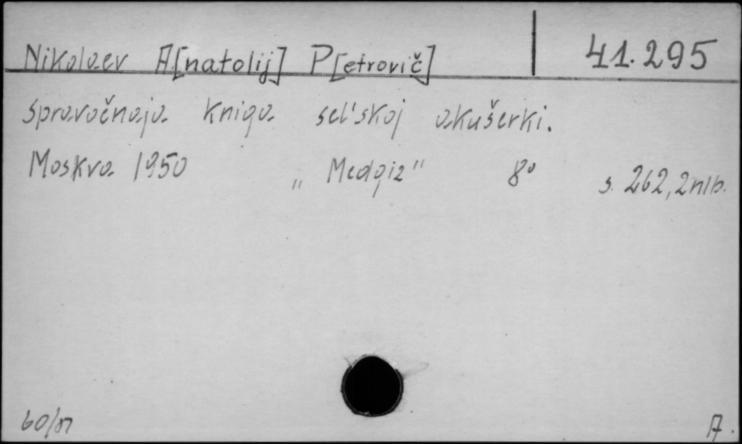 Nikolaev A[natolij] P[etrovič] 41.295
Spravočnaja kniga sel'skoj akušerki.
Moskva 1950 „Medgiz" 8° s. 262, 2 nlb.
A.